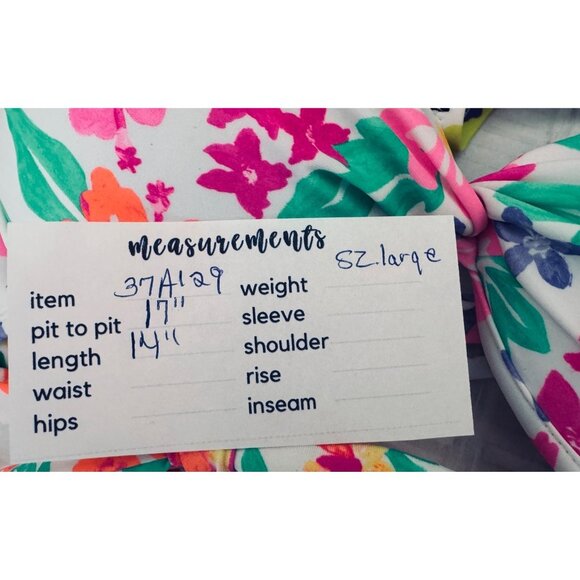 measurements
sz.large
item 37A129 weight
pit to pit 17" sleeve
length 14" shoulder
waist rise
hips inseam